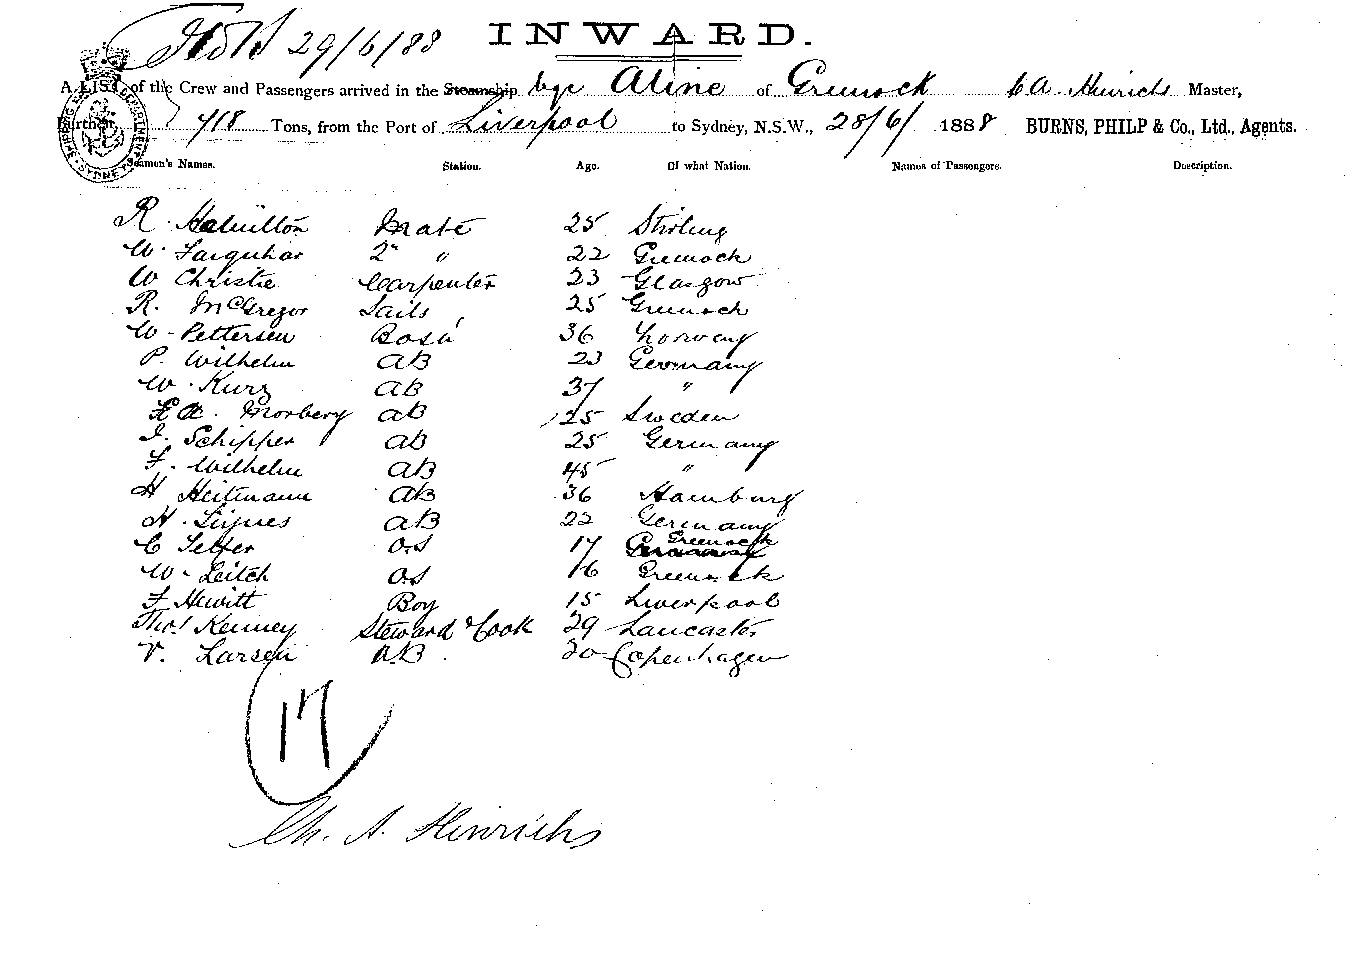 29/6/88 INWARD.
A LIST of the Crew and Passengers arrived in the Steamship bqe Aline of Greenock C A. Hinrichs Master,
Burthen 718 Tons, from the Port of Liverpool to Sydney, N.S.W., 28/6/ 1888 BURNS, PHILP & Co., Ltd., Agents.
Seamen's Names. Station. Age. Of what Nation. Names of Passengers. Description.
R. Hamilton Mate 25 Stirling
W. Farquhar 2nd " 22 Greenock
W Christie Carpenter 23 Glasgow
R. McGregor Sails 25 Greenock
W. Pettersen Bosn 36 Norway
P. Wilhelm AB 23 Germany
W. Kurz AB 37 "
F A. Morberg AB 25 Sweden
J. Schipper AB 25 Germany
F. Wilhelm AB 45 "
H Heitmann AB 36 Hamburg
H. AB 22 Germany
C Telfer OS 17 Greenock
W. Leitch OS 16 Greenock
F Hewitt Boy 15 Liverpool
Thos Kenney Steward & Cook 29 Lancaster
V. Larsen A.B. 20 Copenhagen
17
Ch. A. Hinrichs